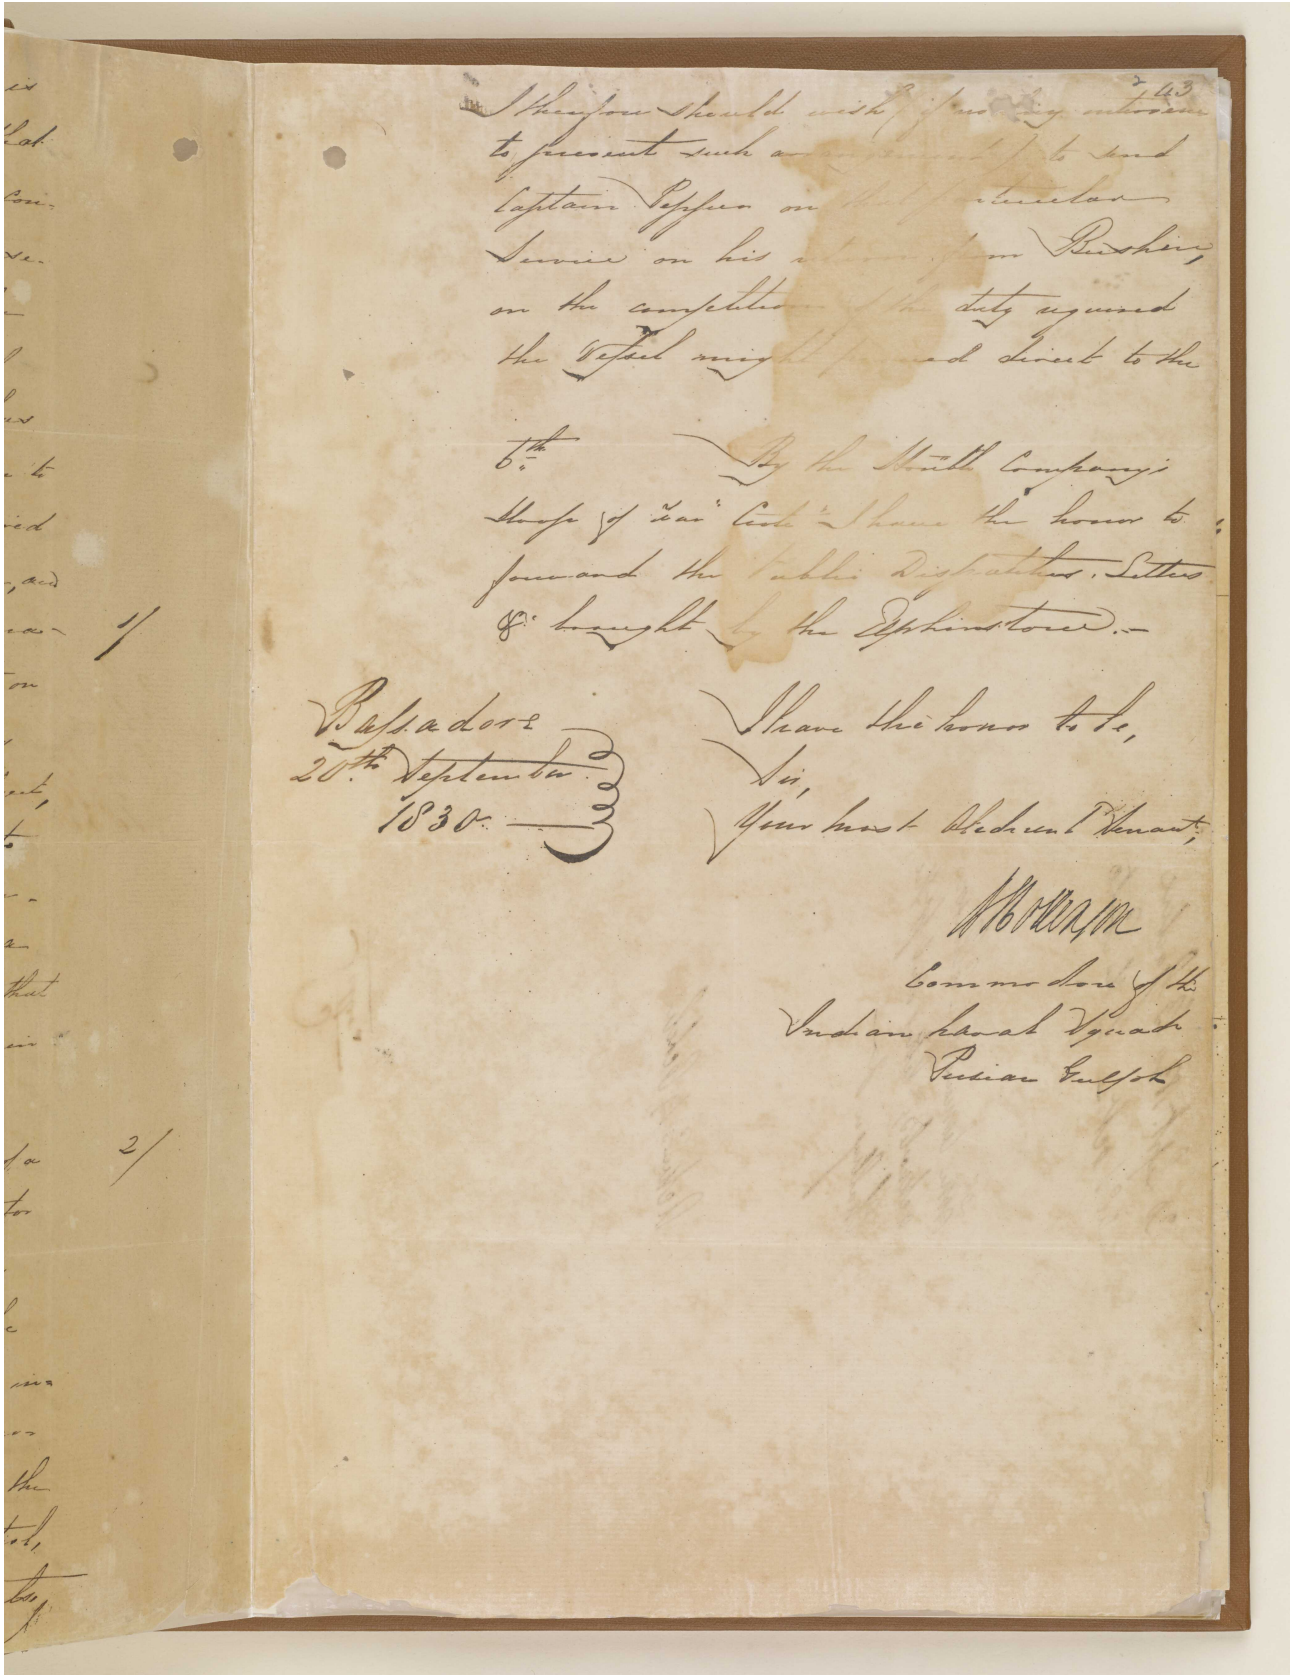 is
that
Con-
se-
to
, and
on
that
of a
tor
the
1/
2/
243
I therefore should wish, if nothing intervene
to prevent such an to send
Captain Pepper on that particular
Service on his return from Bushire,
on the completion of the duty required
the Vessel might proceed direct to the
6th By the Honble Company's
Sloop of War "Coote" I have the honor to
forward the Public Dispatches, Letters
&c brought by the Elphinstone.—
Bassadore
20th September
1830.
I have the honor to be,
Sir,
Your most Obedient Servant,
Commodore of the
Indian Naval Squad
Persian Gulph